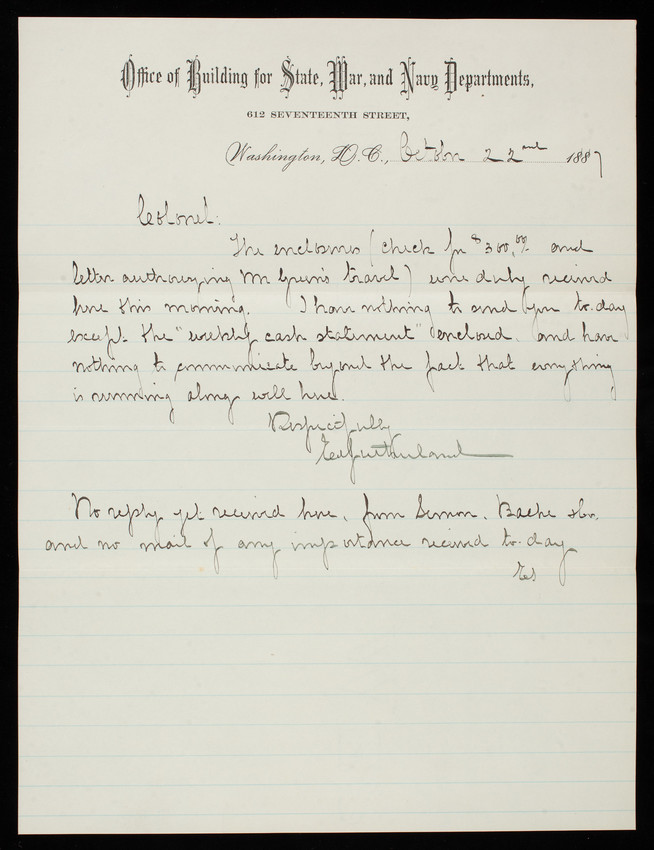 Office of Building for State, War, and Navy Departments,
612 SEVENTEENTH STREET,
Washington, D.C., October 22nd 1887
Colonel:
The enclosures (check for $300.00/00 and
letter authorizing Mr Green's travel) were duly received
here this morning. I have nothing to send you to-day
except the "weekly cash statement" enclosed and have
nothing to communicate beyond the fact that everything
is running along well here.
Respectfully
Ed Sutherland
No reply yet received here, from Semon, Bache &Co.
and no mail of any importance received to-day
ES